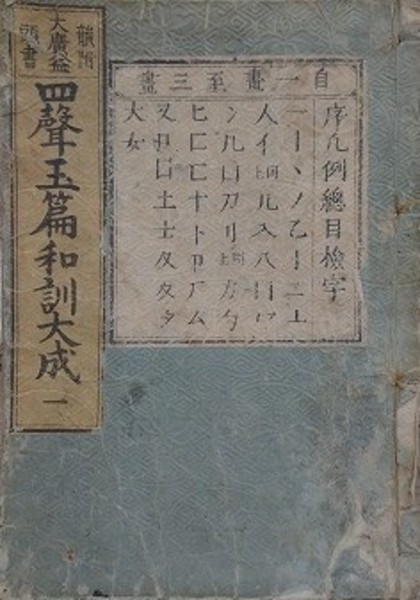 韻附
大廣益
頭書
四聲玉篇和訓大成 一
自一畫至三畫
序凡例總目檢字
一丨丶丿乙亅二亠
人亻上同儿入八冂冖
冫几凵刀刂上同力勹
匕匚匸十卜卩厂厶
又口囗土士夂夊夕
大女